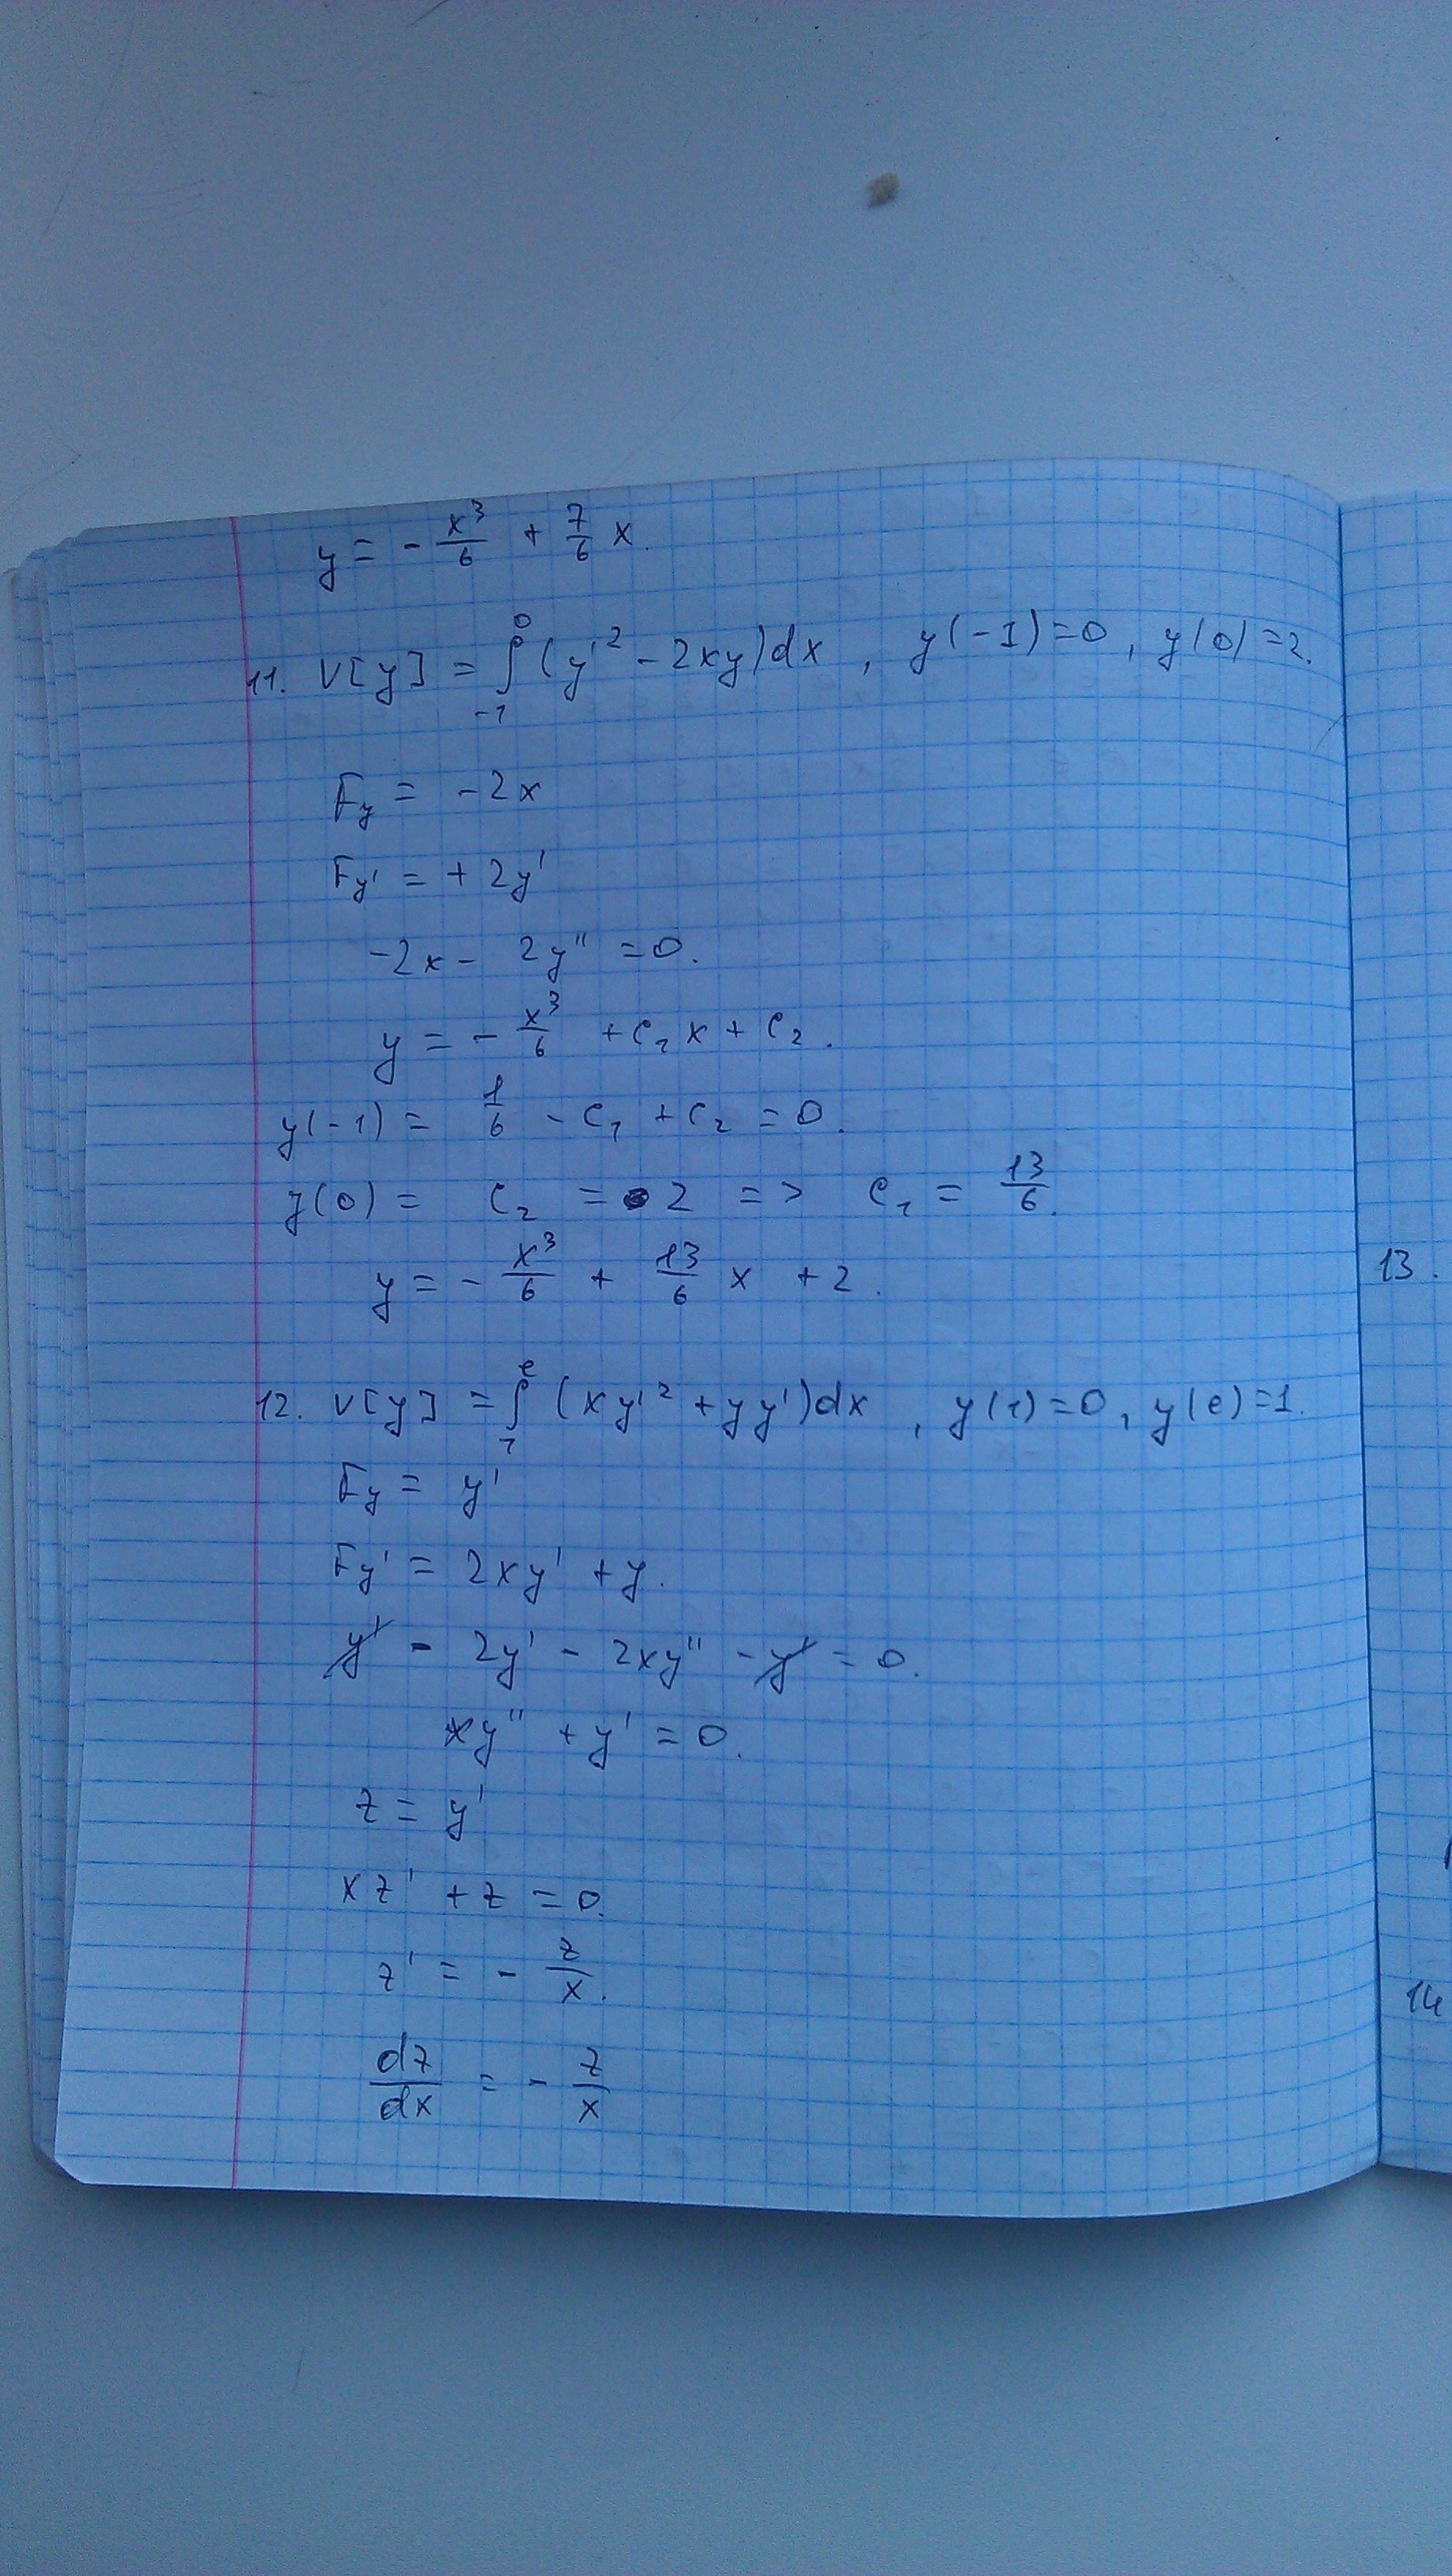 y = - x³/6 + 7/6 x.
11. V[y] = ∫₋₁⁰ (y'² - 2xy)dx , y(-1)=0, y(0)=2.
Fy = -2x
Fy' = +2y'
-2x - 2y'' = 0.
y = - x³/6 + C₁x + C₂.
y(-1) = 1/6 - C₁ + C₂ = 0.
y(0) = C₂ = 2 => C₁ = 13/6.
y = - x³/6 + 13/6 x + 2.
12. V[y] = ∫₁ᵉ (xy'² + yy')dx , y(1)=0, y(e)=1.
Fy = y'
Fy' = 2xy' + y.
y' - 2y' - 2xy'' - y' = 0.
xy'' + y' = 0.
z = y'
xz' + z = 0.
z' = - z/x.
dz/dx = - z/x
13.
14